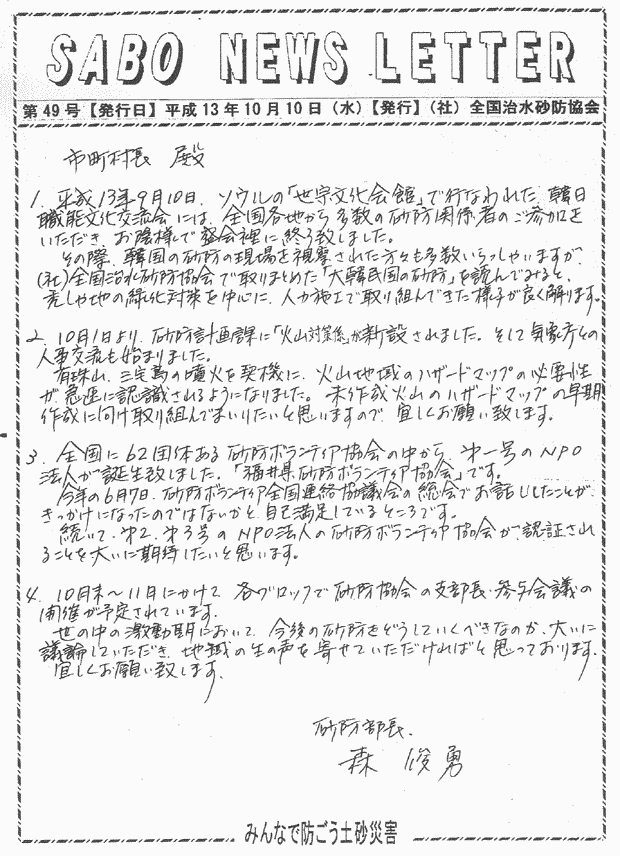 SABO NEWS LETTER
第49号【発行日】平成13年10月10日（水）【発行】（社）全国治水砂防協会
市町村長 殿
1. 平成13年9月10日、ソウルの「世宗文化会館」で行なわれた、韓日
職能文化交流会には、全国各地から多数の砂防関係者のご参加を
いただき、お陰様で盛会裡に終了致しました。
その際、韓国の砂防の現場を視察された方々も多数いらっしゃいますが、
(社)全国治水砂防協会で取りまとめた「大韓民国の砂防」を読んでみると、
禿しゃ地の緑化対策を中心に、人力施工で取り組んできた様子が良く解ります。
2. 10月1日より、砂防計画課に「火山対策係」が新設されました。そして気象庁との
人事交流も始まりました。
有珠山、三宅島の噴火を契機に、火山地域のハザードマップの必要性
が急速に認識されるようになりました。未作成火山のハザードマップの早期
作成に向け取り組んでまいりたいと思いますので、宜しくお願い致します。
3. 全国に62団体ある砂防ボランティア協会の中から、第一号のNPO
法人が誕生致しました。「福井県砂防ボランティア協会」です。
今年の6月7日、砂防ボランティア全国連絡協議会の総会でお話ししたことが、
きっかけになったのではないかと、自己満足しているところです。
続いて、第2、第3号のNPO法人の砂防ボランティア協会が、認証され
ることを大いに期待したいと思います。
4. 10月末〜11日にかけて、各ブロックで砂防協会の支部長・参与会議の
開催が予定されています。
世の中の激動期において、今後の砂防をどうしていくべきなのか、大いに
議論していただき、地域の生の声を寄せていただければと思っております。
宜しくお願い致します。
砂防部長、
森 俊勇
みんなで防ごう土砂災害